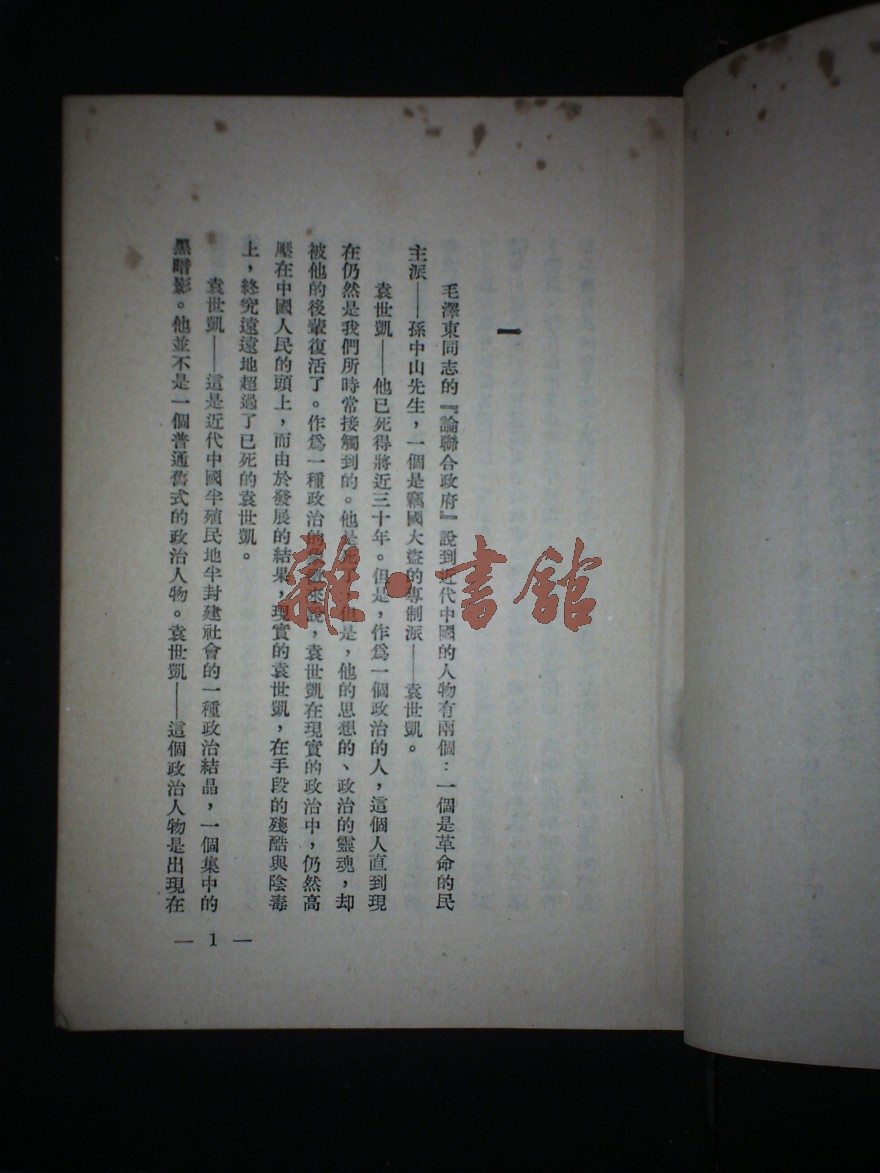 一
毛澤東同志的『論聯合政府』說到近代中國的人物有兩個：一個是革命的民
主派——孫中山先生，一個是竊國大盜的專制派——袁世凱。
袁世凱——他已死得將近三十年。但是，作爲一個政治的人，這個人直到現
在仍然是我們所時常接觸到的。他是死了，但是，他的思想的、政治的靈魂，却
被他的後輩復活了。作爲一種政治的來說，袁世凱在現實的政治中，仍然高
壓在中國人民的頭上，而由於發展的結果，現實的袁世凱，在手段的殘酷與陰毒
上，終究遠遠地超過了已死的袁世凱。
袁世凱——這是近代中國半殖民地半封建社會的一種政治結晶，一個集中的
黑暗影。他並不是一個普通舊式的政治人物。袁世凱——這個政治人物是出現在
— 1 —
雜·書館